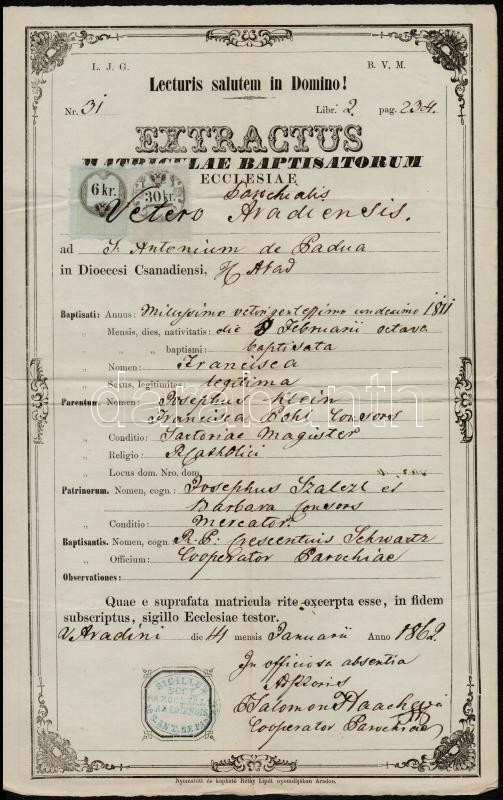 L. J. G. B. V. M.
Lecturis salutem in Domino!
Nr. 31 Libr. 2. pag. 234.
EXTRACTUS
MATRICULAE BAPTISATORUM
ECCLESIAE
6 kr. 30 kr. Parochialis
Vetero Aradiensis.
ad S. Antonium de Padua
in Dioecesi Csanadiensi, Arad
Baptisati: Annus: Millesimo undecimo 1811
„ Mensis, dies, nativitatis: die Februarii octava
„ „ „ baptismi: baptisata
„ Nomen: Francisca
„ Sexus, legitimitas: legtima
Parentum Nomen: Josephus Klein
Francisca Pohl Consors
„ Conditio: Sartoriae Magister
„ Religio: R. Catholici
„ Locus dom. Nro. dom.
Patrinorum. Nomen, cogn.: Josephus et
Barbara Consors
„ Conditio: Mercator
Baptisantis. Nomen, cogn.: R. P. Crescentuis Schwartz
„ Officium: Cooperator Parochiae
Observationes:
darabanth
Quae e suprafata matricula rite excerpta esse, in fidem
subscriptus, sigillo Ecclesiae testor.
V. Aradini die 4 mensis Januarii Anno 1862.
In officiosa absentia
Salomon
Cooperator Parochiae
Nyomatott és kapható Réthy Lipót nyomdájában Aradon.